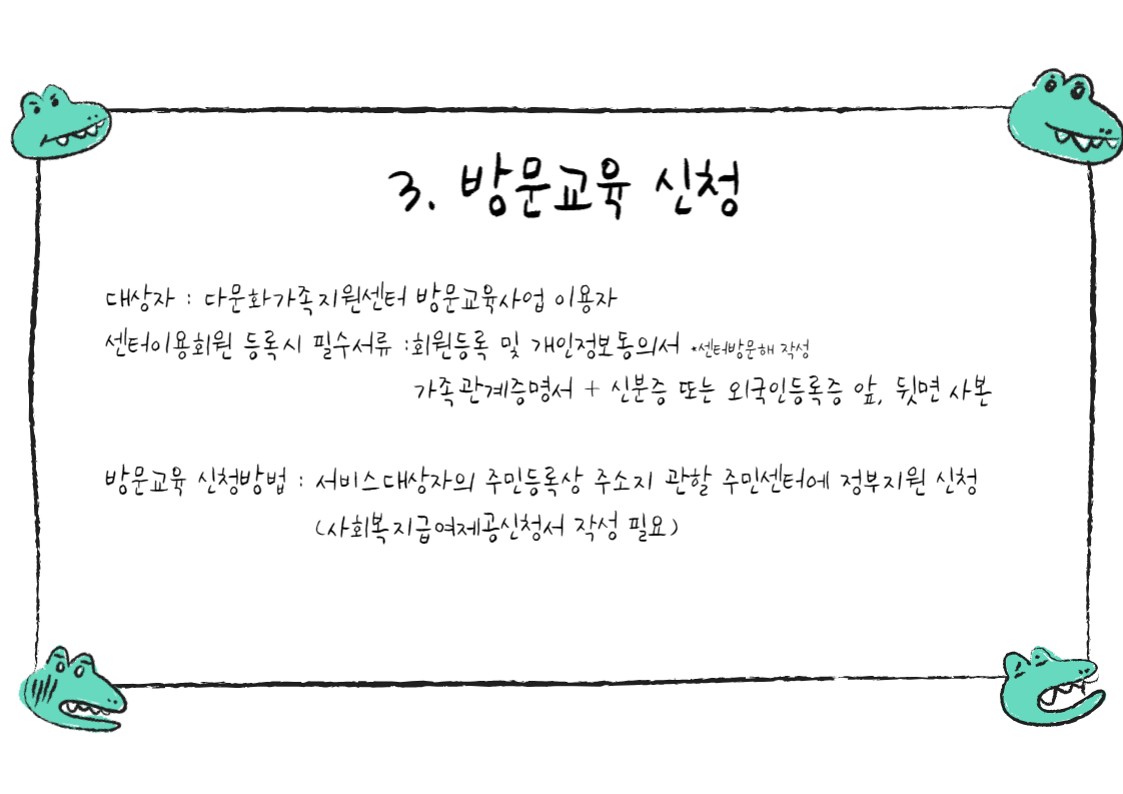 3. 방문교육 신청
대상자 : 다문화가족지원센터 방문교육사업 이용자
센터이용회원 등록시 필수서류 :회원등록 및 개인정보동의서 *센터방문해 작성
가족관계증명서 + 신분증 또는 외국인등록증 앞, 뒷면 사본
방문교육 신청방법 : 서비스대상자의 주민등록상 주소지 관할 주민센터에 정부지원 신청
(사회복지급여제공신청서 작성 필요)